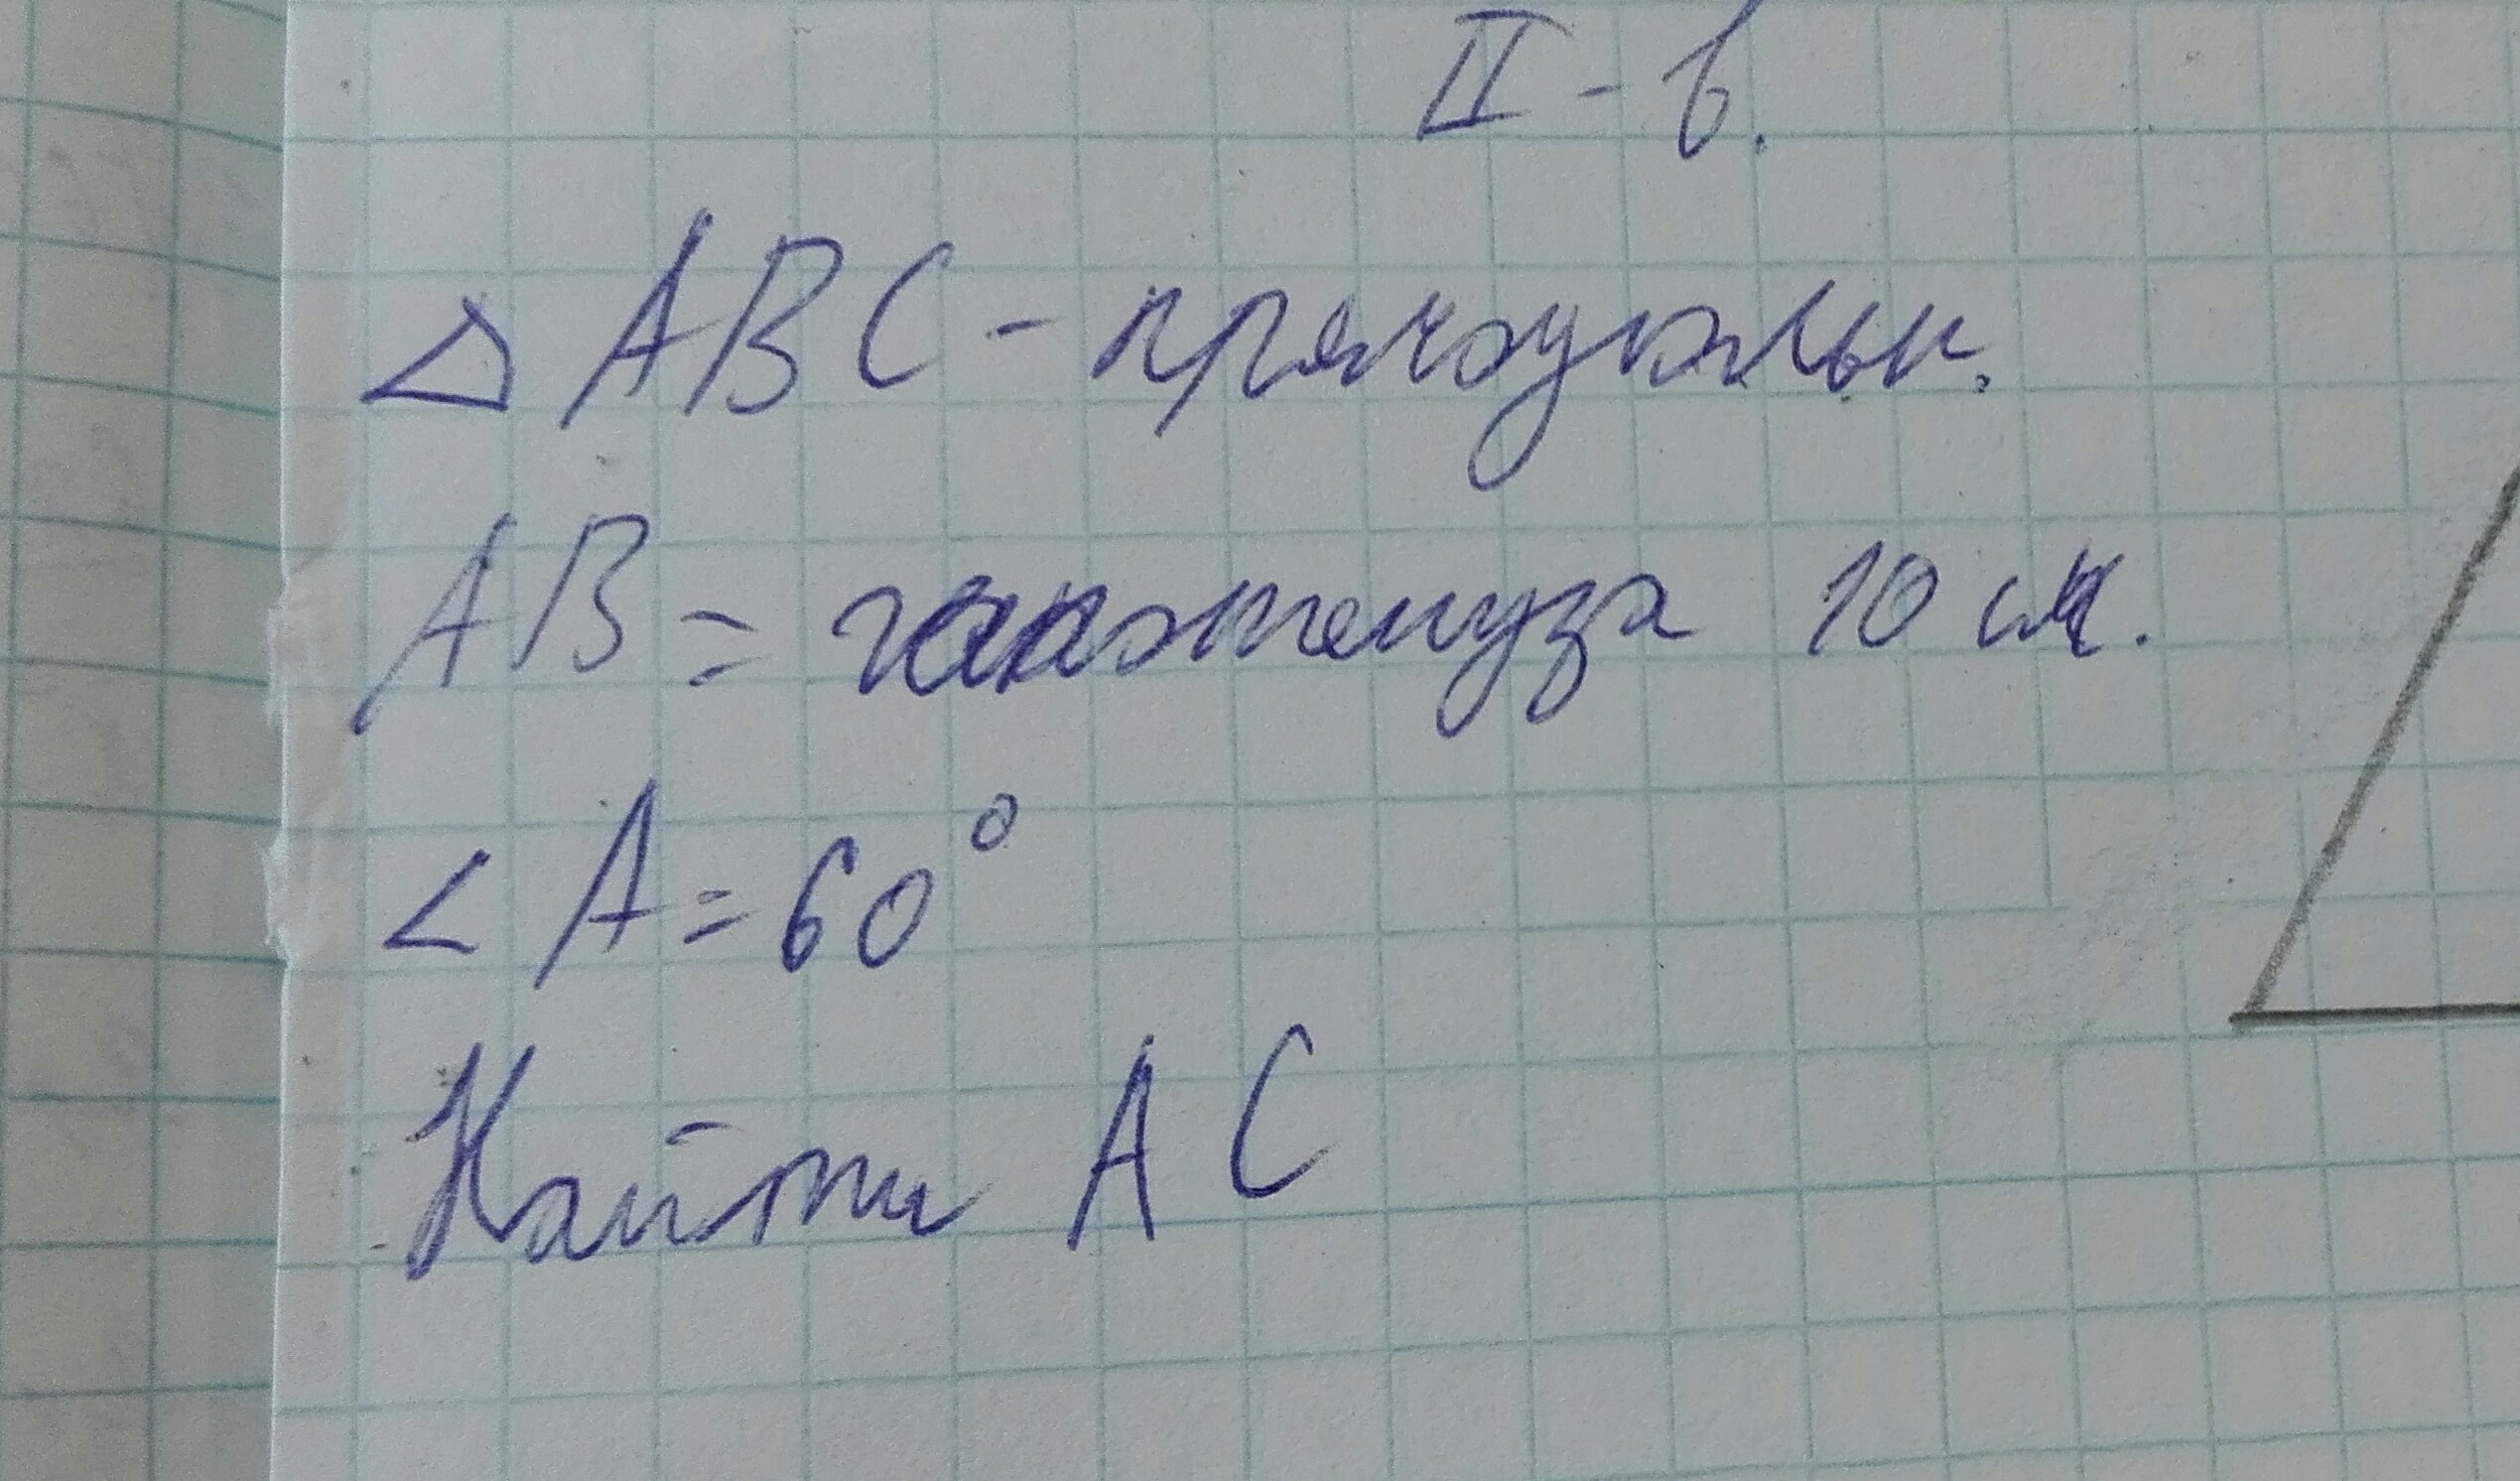 II - в.
△ ABC - прямоугольн.
AB = гипотенуза 10 см.
< A = 60°
Найти AC